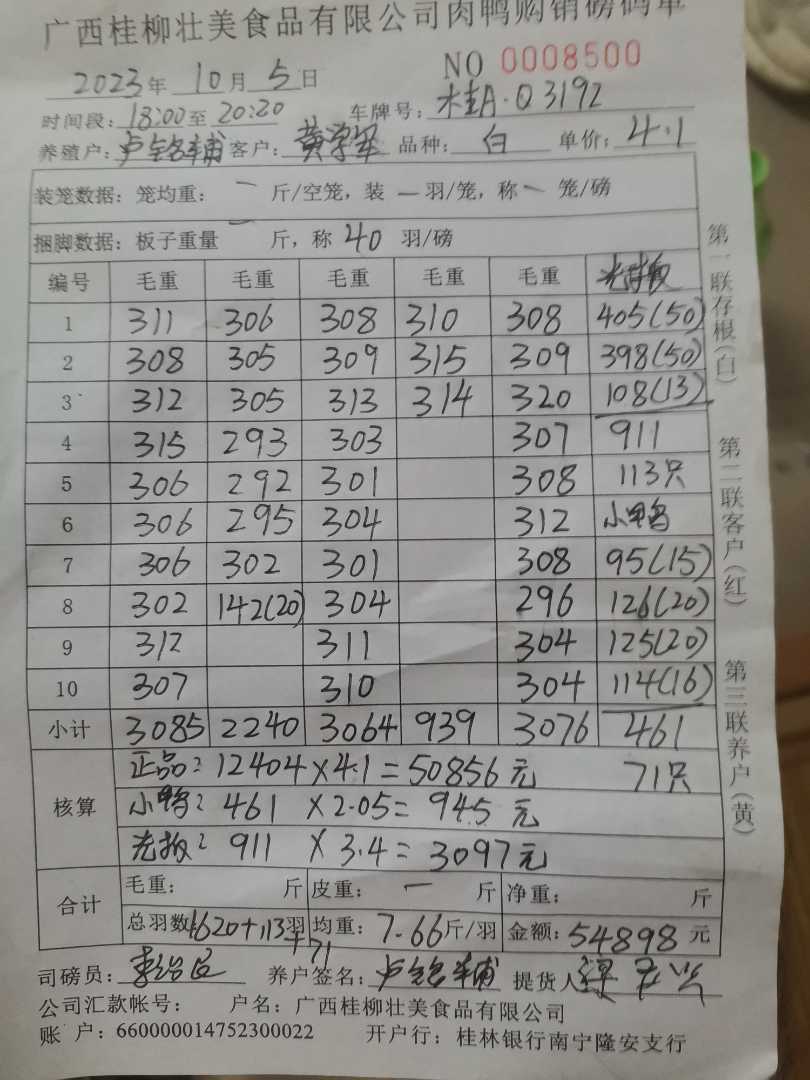 广西桂柳壮美食品有限公司肉鸭购销磅码单
2023年 10月 5日 NO 0008500
时间段: 18:00至 20:20 车牌号: 桂A·Q3192
养殖户: 卢铭辅 客户: 黄学军 品种: 白 单价: 4.1
装笼数据: 笼均重: 一 斤/空笼, 装 一 羽/笼, 称 一 笼/磅
捆脚数据: 板子重量 一 斤, 称 40 羽/磅
编号 毛重 毛重 毛重 毛重 毛重
1 311 306 308 310 308 405(50)
2 308 305 309 315 309 398(50)
3 312 305 313 314 320 108(13)
4 315 293 303 307 911
5 306 292 301 308 113只
6 306 295 304 312 小鸭
7 306 302 301 308 95(15)
8 302 142(20) 304 296 126(20)
9 312 311 304 125(20)
10 307 310 304 114(16)
小计 3085 2240 3064 939 3076 461
核算 正品: 12404×4.1=50856元 71只
小鸭: 461 ×2.05= 945 元
光板: 911 × 3.4= 3097元
合计 毛重: 斤 皮重: 一 斤 净重: 斤
总羽数: 1620+113羽 均重: 7.66斤/羽 金额: 54898 元
+71
司磅员: 养户签名: 卢铭辅 提货人
公司汇款帐号: 户名: 广西桂柳壮美食品有限公司
账 户: 660000014752300022 开户行: 桂林银行南宁隆安支行
第一联存根(白)
第二联客户(红)
第三联养户(黄)